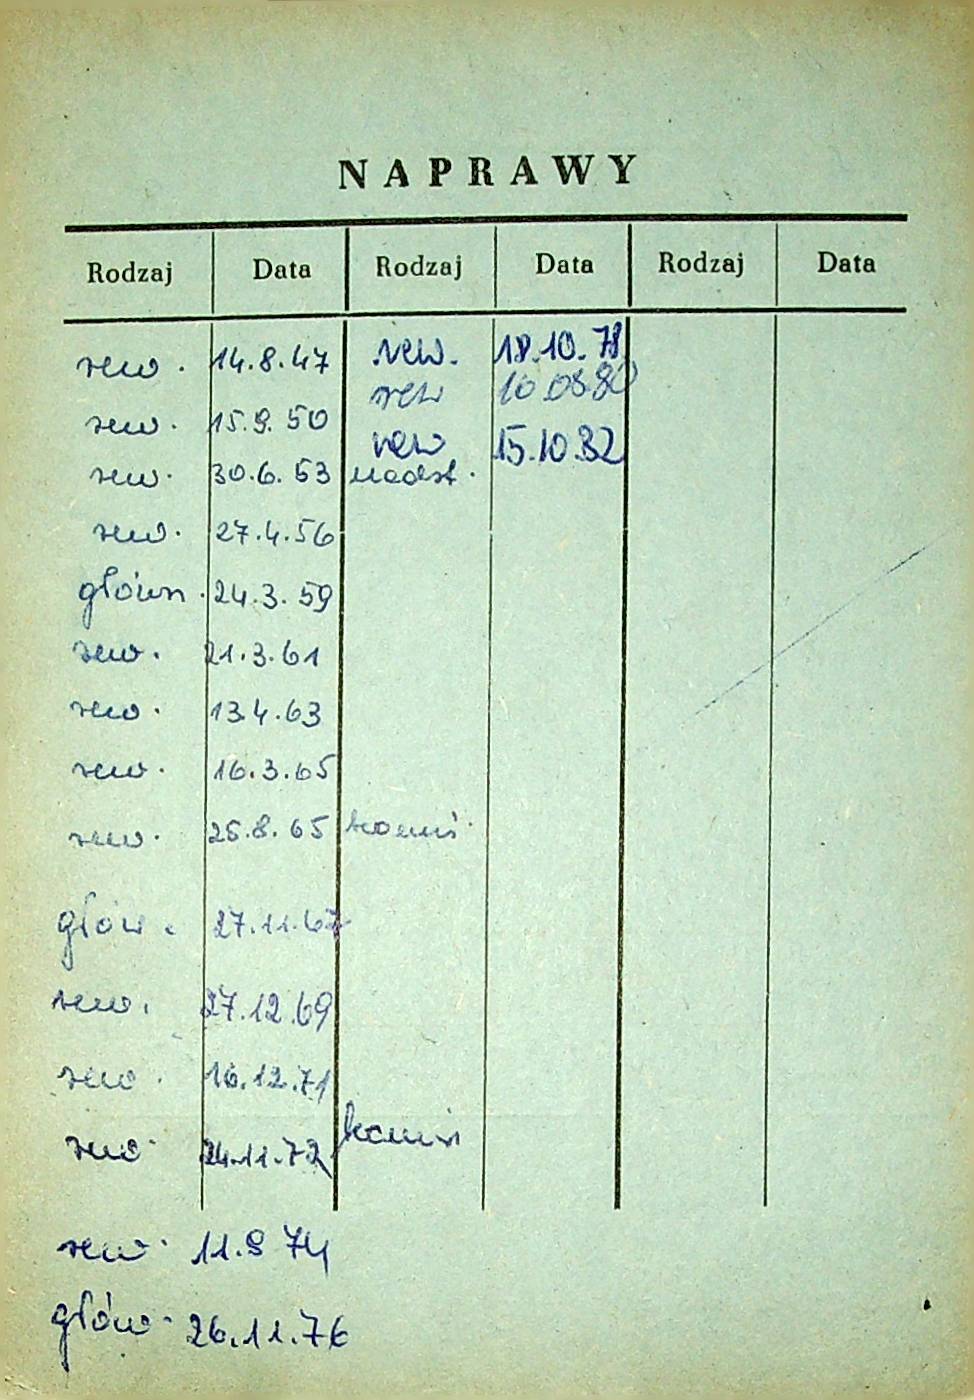 NAPRAWY
Rodzaj Data Rodzaj Data Rodzaj Data
rew. 14.8.47 rew. 18.10.78
rew 10.08.80
rew. 15.9.50
rew 15.10.82
rew. 30.6.53 nadst.
rew. 27.4.56
główn. 24.3.59
rew. 21.3.61
rew. 13.4.63
rew. 16.3.65
rew. 25.8.65 komis.
głów. 27.11.67
rew. 27.12.69
rew. 16.12.71
rew. 24.11.72 komis
rew. 11.9 74
głów. 26.11.76